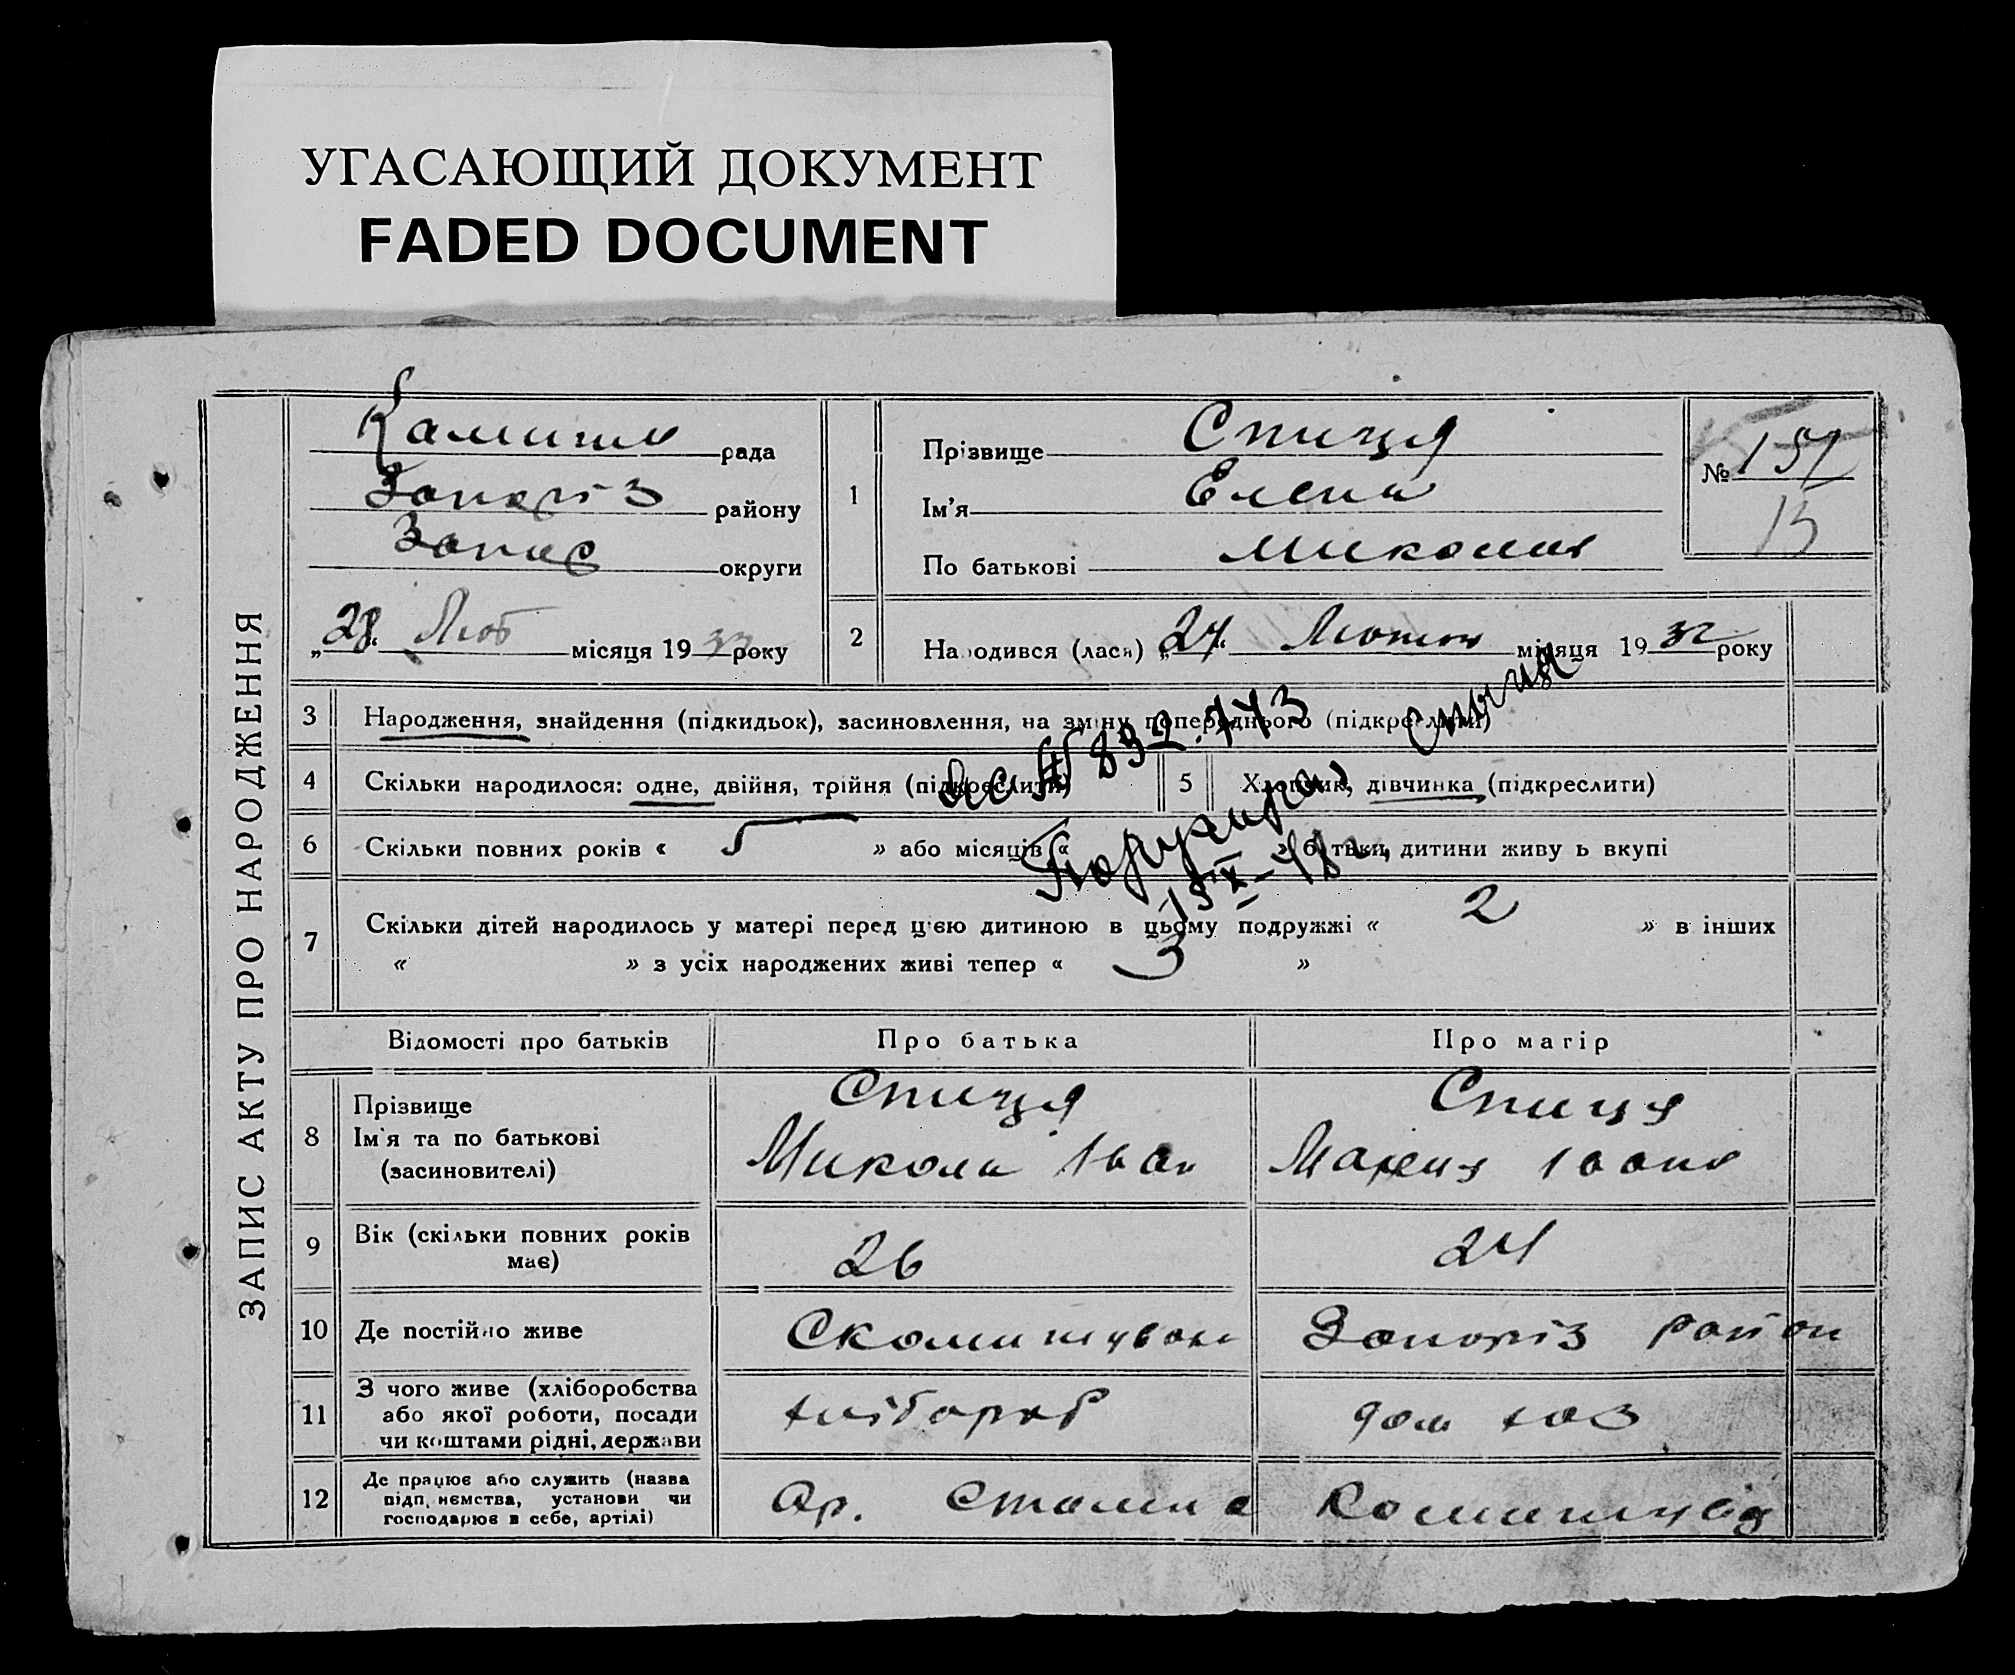 УГАСАЮЩИЙ ДОКУМЕНТ
FADED DOCUMENT
ЗАПИС АКТУ ПРО НАРОДЖЕННЯ
рада
Запоріз району
округи
„28“ Лют місяця 19 33 року
1
Прізвище Спиця
Ім'я Елена
По батькові Микол
№ 151
15
2
Народився (лася) „27“ Лютого місяця 19 32 року
3 Народження, знайдення (підкидьок), засиновлення, на зміну попереднього (підкреслити)
4 Скільки народилося: одне, двійня, трійня (підкреслити)
5 Хлопчик, дівчинка (підкреслити)
6 Скільки повних років « 5 » або місяців « » батьки, дитини живуть вкупі
7 Скільки дітей народилось у матері перед цією дитиною в цьому подружжі « 2 » в інших
« » з усіх народжених живі тепер « 3 »
832.743
Спиця
15 X-48
Відомості про батьків Про батька Про матір
8 Прізвище
Ім'я та по батькові
(засиновителі)
Спиця
Микола Іван
Спиця
Мария Іован
9 Вік (скільки повних років
має)
26
24
10 Де постійно живе
Запоріз район
11 З чого живе (хліборобства
або якої роботи, посади
чи коштами рідні, держави
хлібороб
дом хоз
12 Де працює або служить (назва
підприємства, установи чи
господарює в себе, артілі)
Ар. Сталина